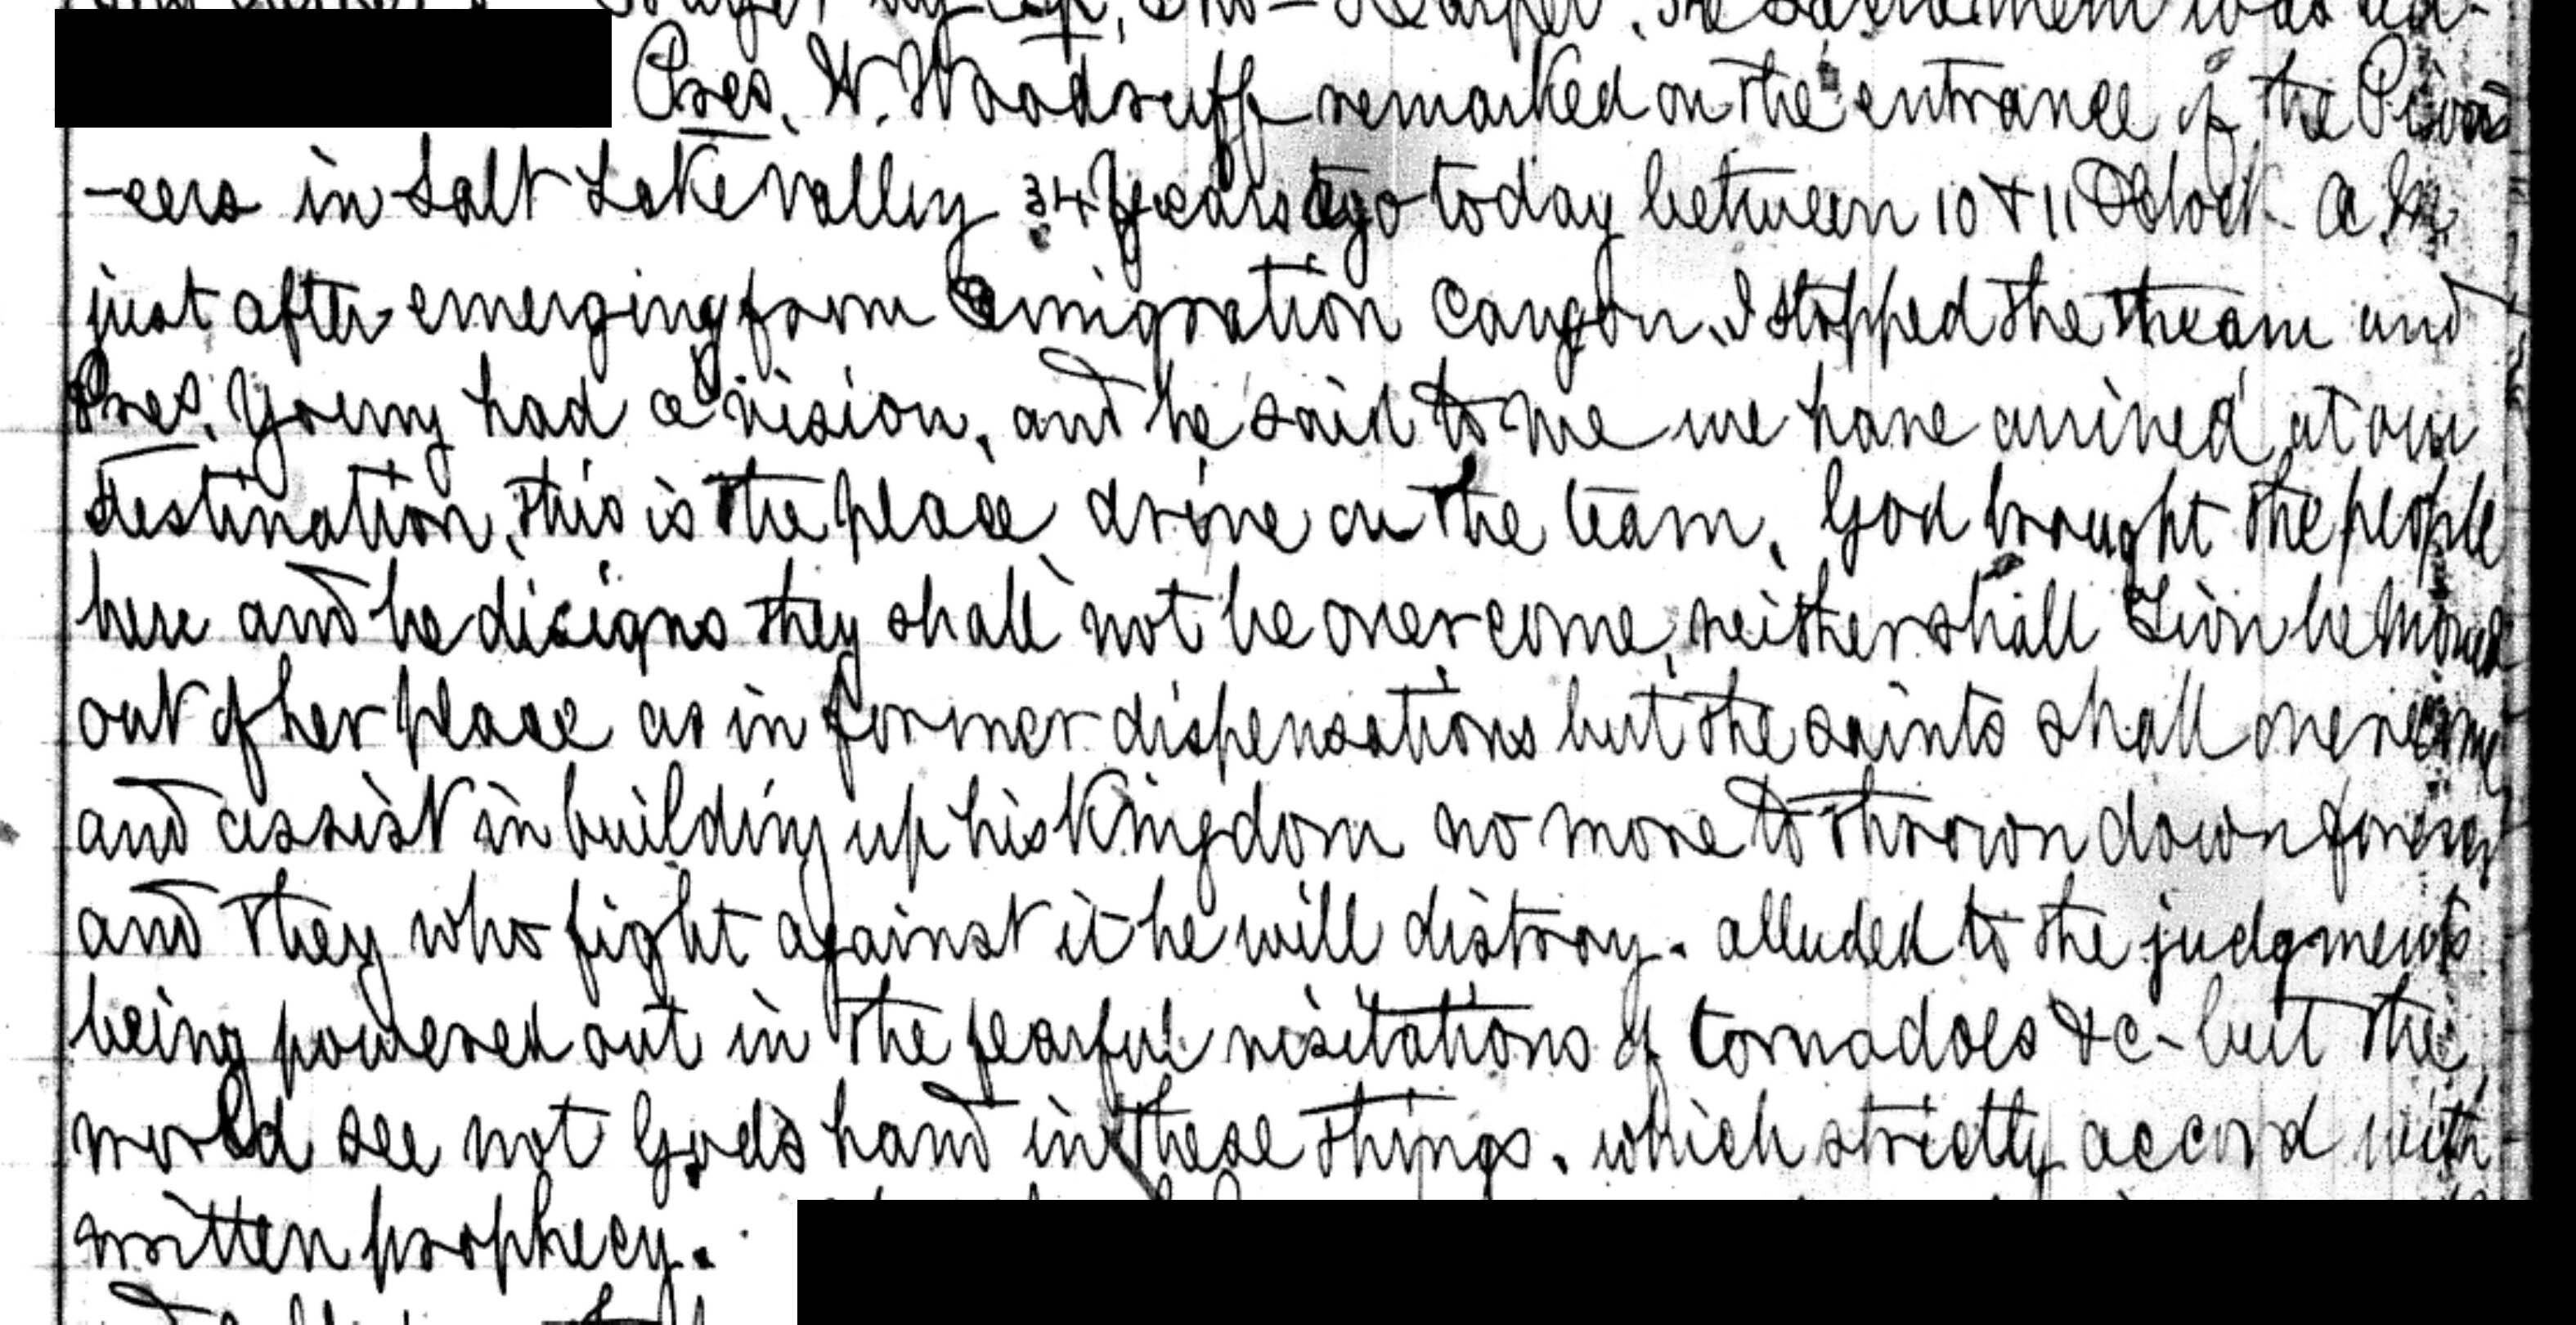 The Sacrament was ad-
Pres. W. Woodruff remarked on the entrance of the Pion
-eers in Salt Lake Valley 34 years ago today between 10 & 11 Oclock A M.
just after emerging from Emigration Canyon. I stopped the team and
Pres. Young had a vision, and he said to me we have arrived at our
destination, this is the place, drive on the team. God brought the people
here and he disigns they shall not be overcome, neither shall Zion be moved
out of her place as in former dispensations but the saints shall overcome
and assist in building up his Kingdom no more to thrown down forever
and they who fight against it he will distroy. alluded to the judgments
being powered out in the fearful visitations of tornadoes &c- but the
world see not Gods hand in these things. which strictly accord with
written prophecy.